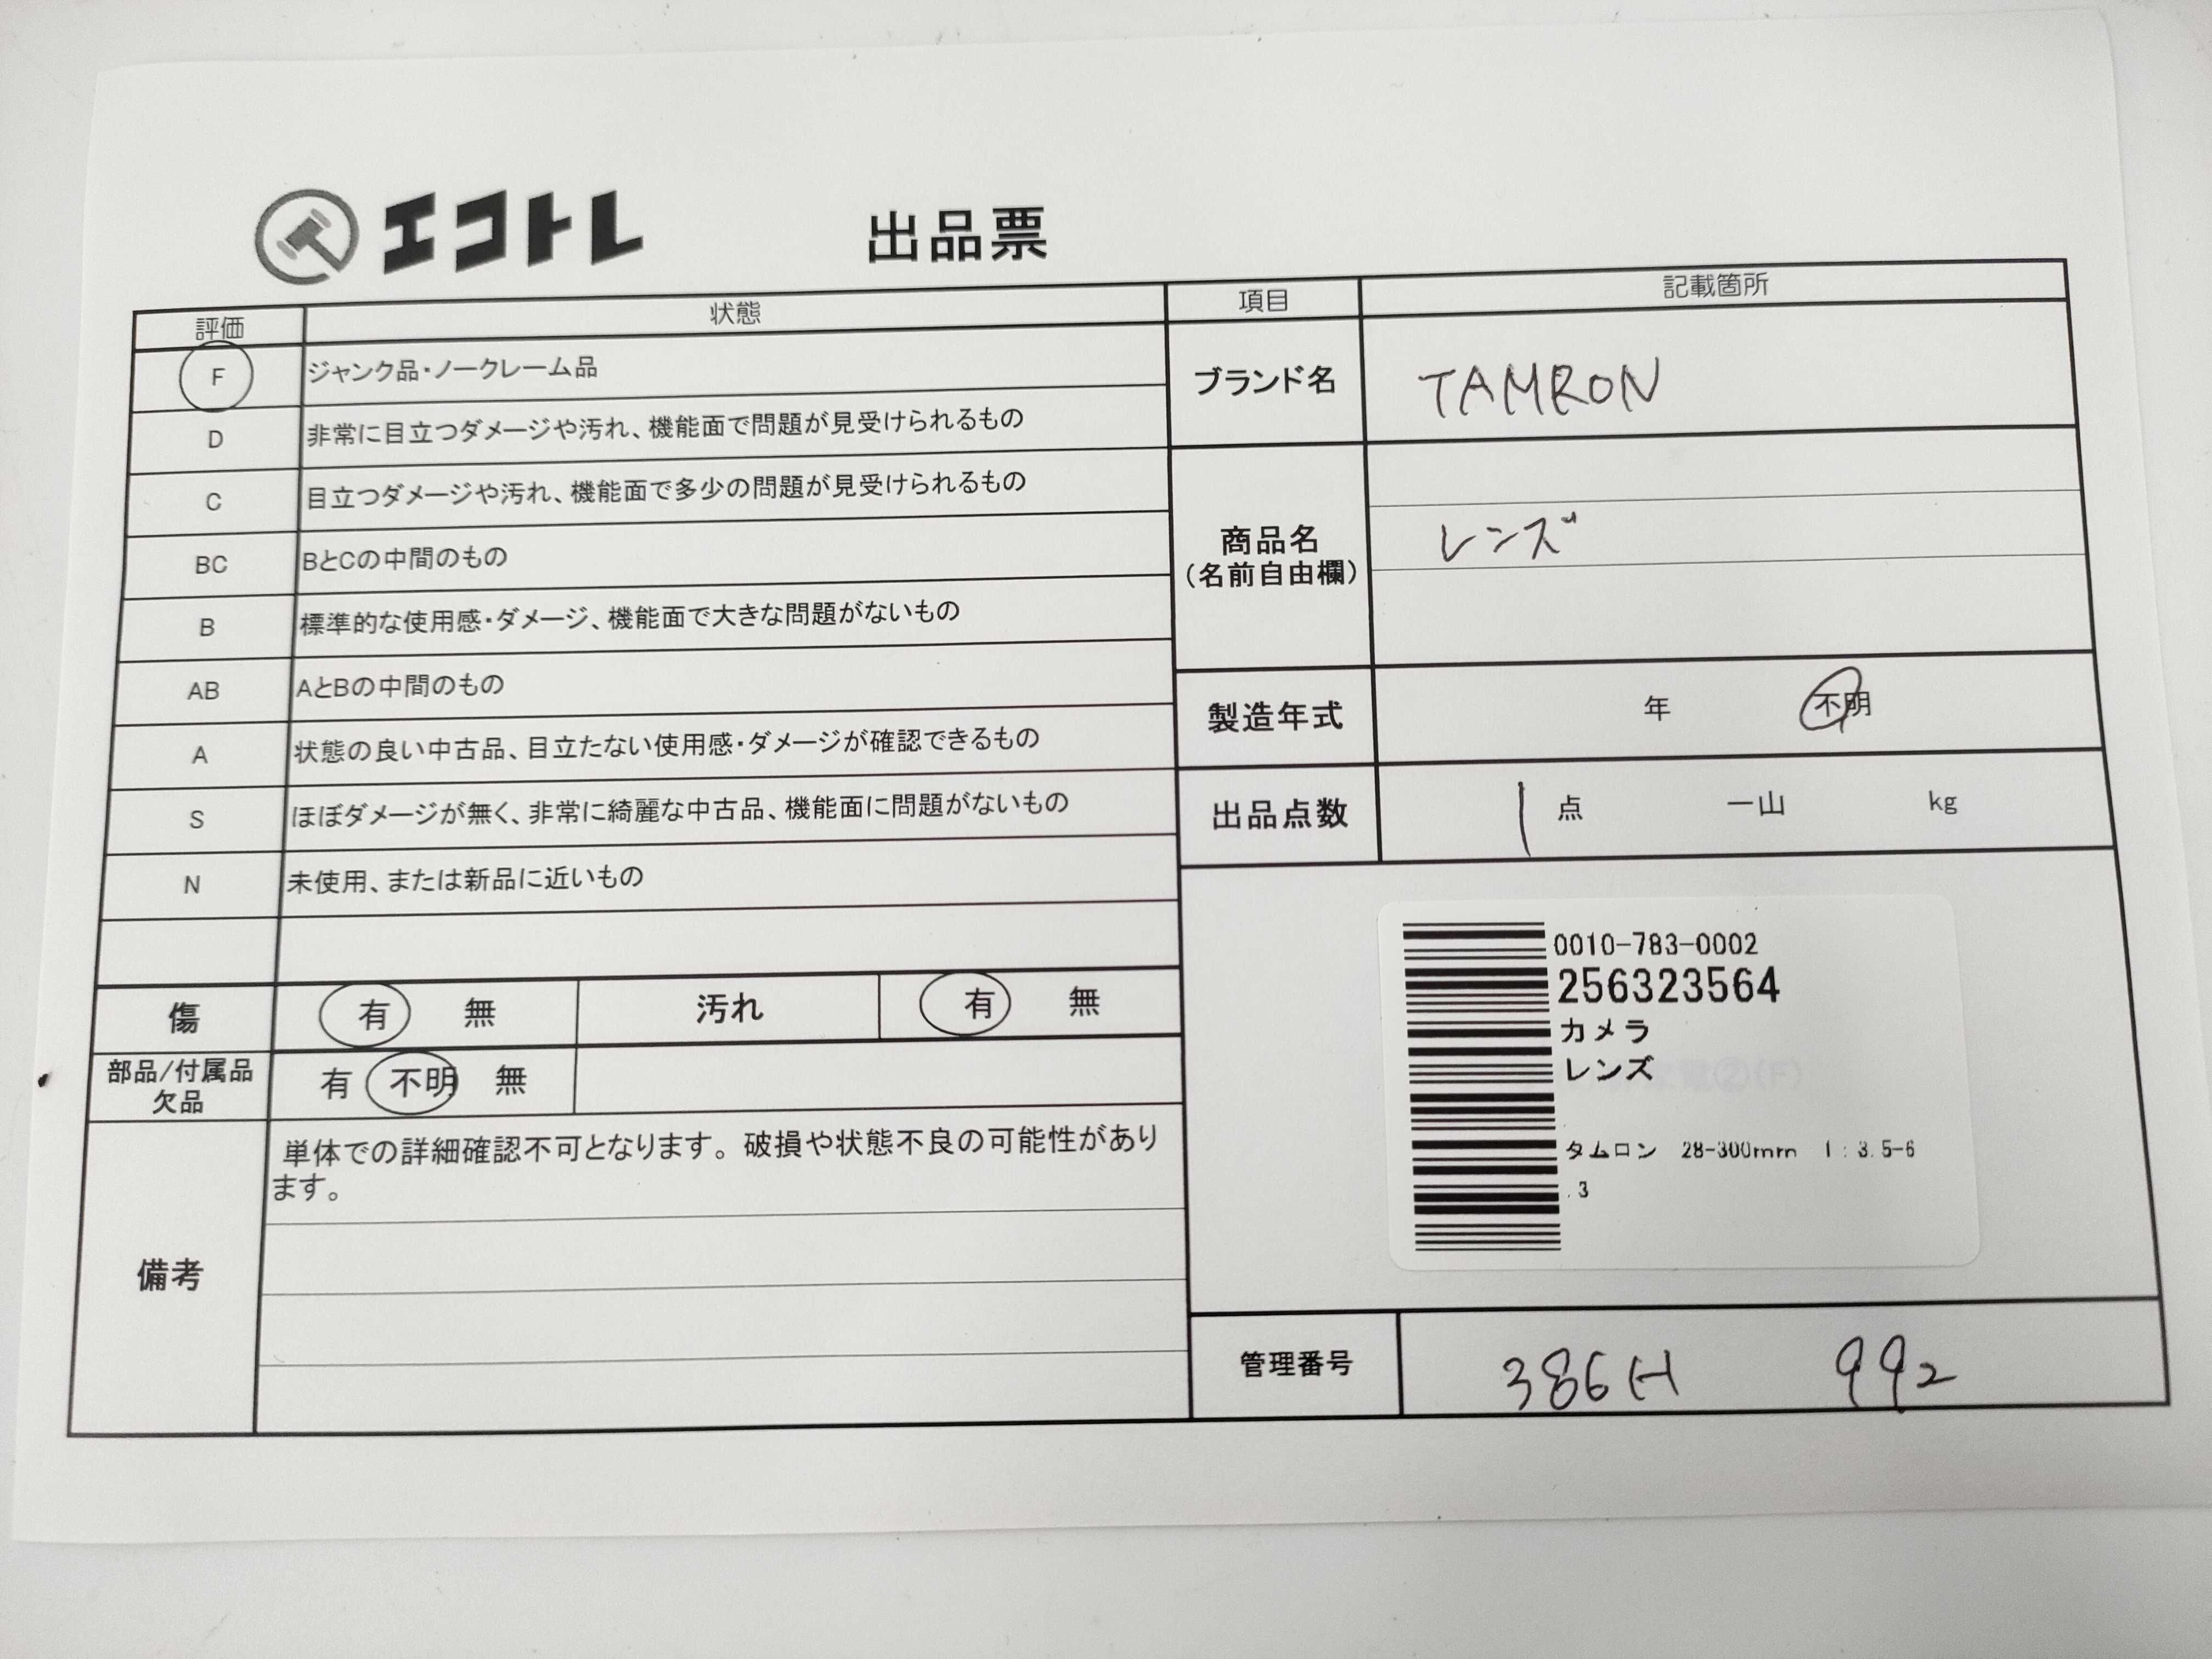 エコトレ
出品票
評価 状態
F ジャンク品・ノークレーム品
D 非常に目立つダメージや汚れ、機能面で問題が見受けられるもの
C 目立つダメージや汚れ、機能面で多少の問題が見受けられるもの
BC BとCの中間のもの
B 標準的な使用感・ダメージ、機能面で大きな問題がないもの
AB AとBの中間のもの
A 状態の良い中古品、目立たない使用感・ダメージが確認できるもの
S ほぼダメージが無く、非常に綺麗な中古品、機能面に問題がないもの
N 未使用、または新品に近いもの
傷 有 無 汚れ 有 無
部品/付属品
欠品
有 不明 無
備考
単体での詳細確認不可となります。破損や状態不良の可能性があり
ます。
項目 記載箇所
ブランド名 TAMRON
商品名
(名前自由欄)
レンズ
製造年式 年 不明
出品点数 1 点 一山 kg
0010-783-0002
256323564
カメラ
レンズ
タムロン 28-300mm 1:3.5-6
.3
管理番号 386H 992